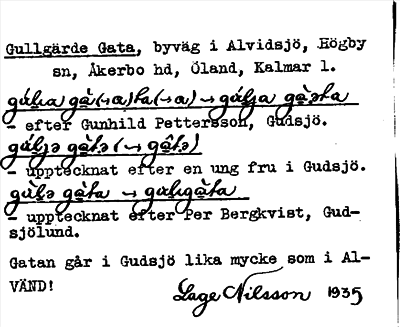 Gullgärde Gata, byväg i Alvidsjö, Högby
sn, Åkerbo hd, Öland, Kalmar l.
– efter Gunhild Pettersson, Gudsjö.
– upptecknat efter en ung fru i Gudsjö.
– upptecknat efter Per Bergkvist, Gud-
sjölund.
Gatan går i Gudsjö lika mycke som i Al-
VÄND!
Lage Nilsson 1935